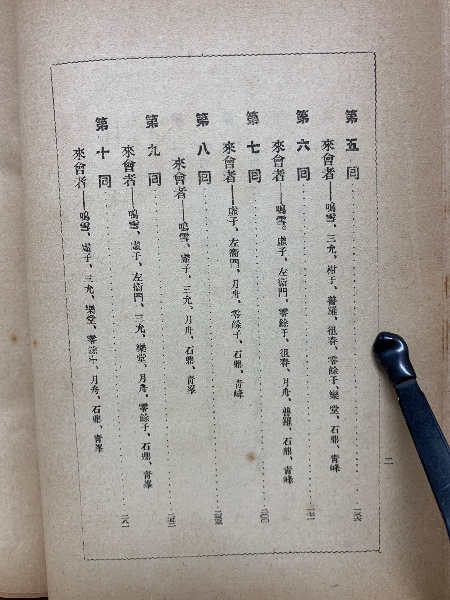 第五回
來會者――鳴雪、三允、柑子、普羅、徂春、零餘子、樂堂、石鼎、青峰
第六回
來會者――鳴雪。虛子、左衞門、零餘子、徂春、月舟、普羅、石鼎、青峰
第七回
來會者――虛子、左衞門、月舟、零餘子、石鼎、青峰
第八回
來會者――鳴雪、虛子、三允、月舟、石鼎、青峯
第九回
來會者――鳴雪、虛子、左衞門、三允、樂堂、月舟、零餘子、石鼎、青峯
第十回
來會者――鳴雪、虛子、三允、樂堂、零餘子、月舟、石鼎、青峯
二